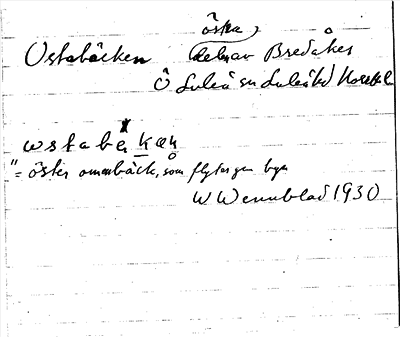 östra
Ostabäcken delnav Bredåker
Ö Luleå sn Luleåkd Norrb l
wstabekæn
"= öster omenbäck, som flyter gen byn
W Wennblad 1930